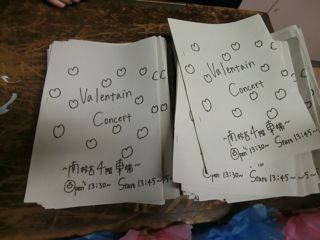 Valentain
Concert
~南校舎4階東端~
Open 13:30~ Start 13:45~
Valentain
Concert
~南校舎4階東端~
Open 13:30~
Open 13:30~ Start 13:45~